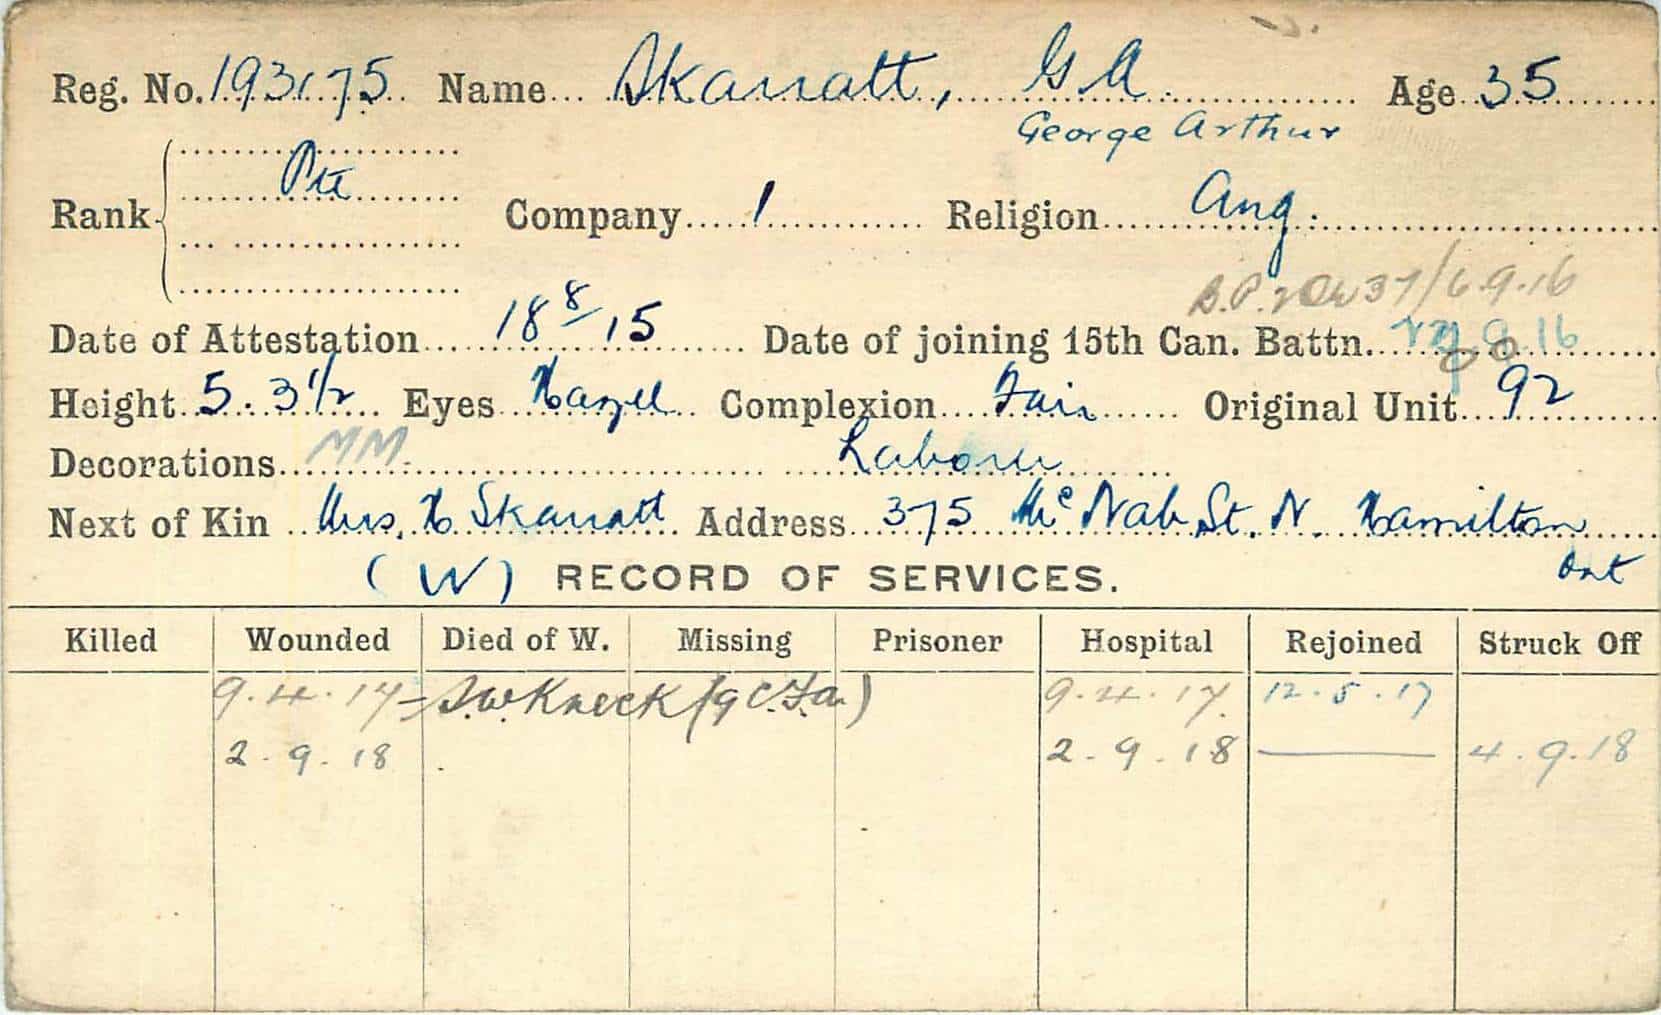 Reg. No. 193175 Name Skarratt, G A. Age 35
George Arthur
Pte
Rank Company 1 Religion Ang.
6.9.16
Date of Attestation 18 8/15 Date of joining 15th Can. Battn. 9 16
Height 5. 3 1/2 Eyes Hazel Complexion Fair Original Unit 92
Decorations MM. Laborer
Next of Kin Mrs. H Skarratt Address 375 McNab St. N. Hamilton
Ont
(W) RECORD OF SERVICES.
Killed Wounded Died of W. Missing Prisoner Hospital Rejoined Struck Off
9.4.17 - S.W. Kneck (9 C.F.a.) 9.4.17. 12.5.17
2.9.18 2.9.18 — 4.9.18